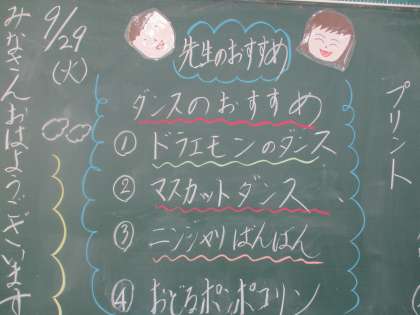 みなさんおはようございます
9/29
(火)
先生のおすすめ
ダンスのおすすめ
① ドラエモンのダンス
② マスカットダンス
③ ニンジャリばんばん
④ おどるポンポコリン
プリント